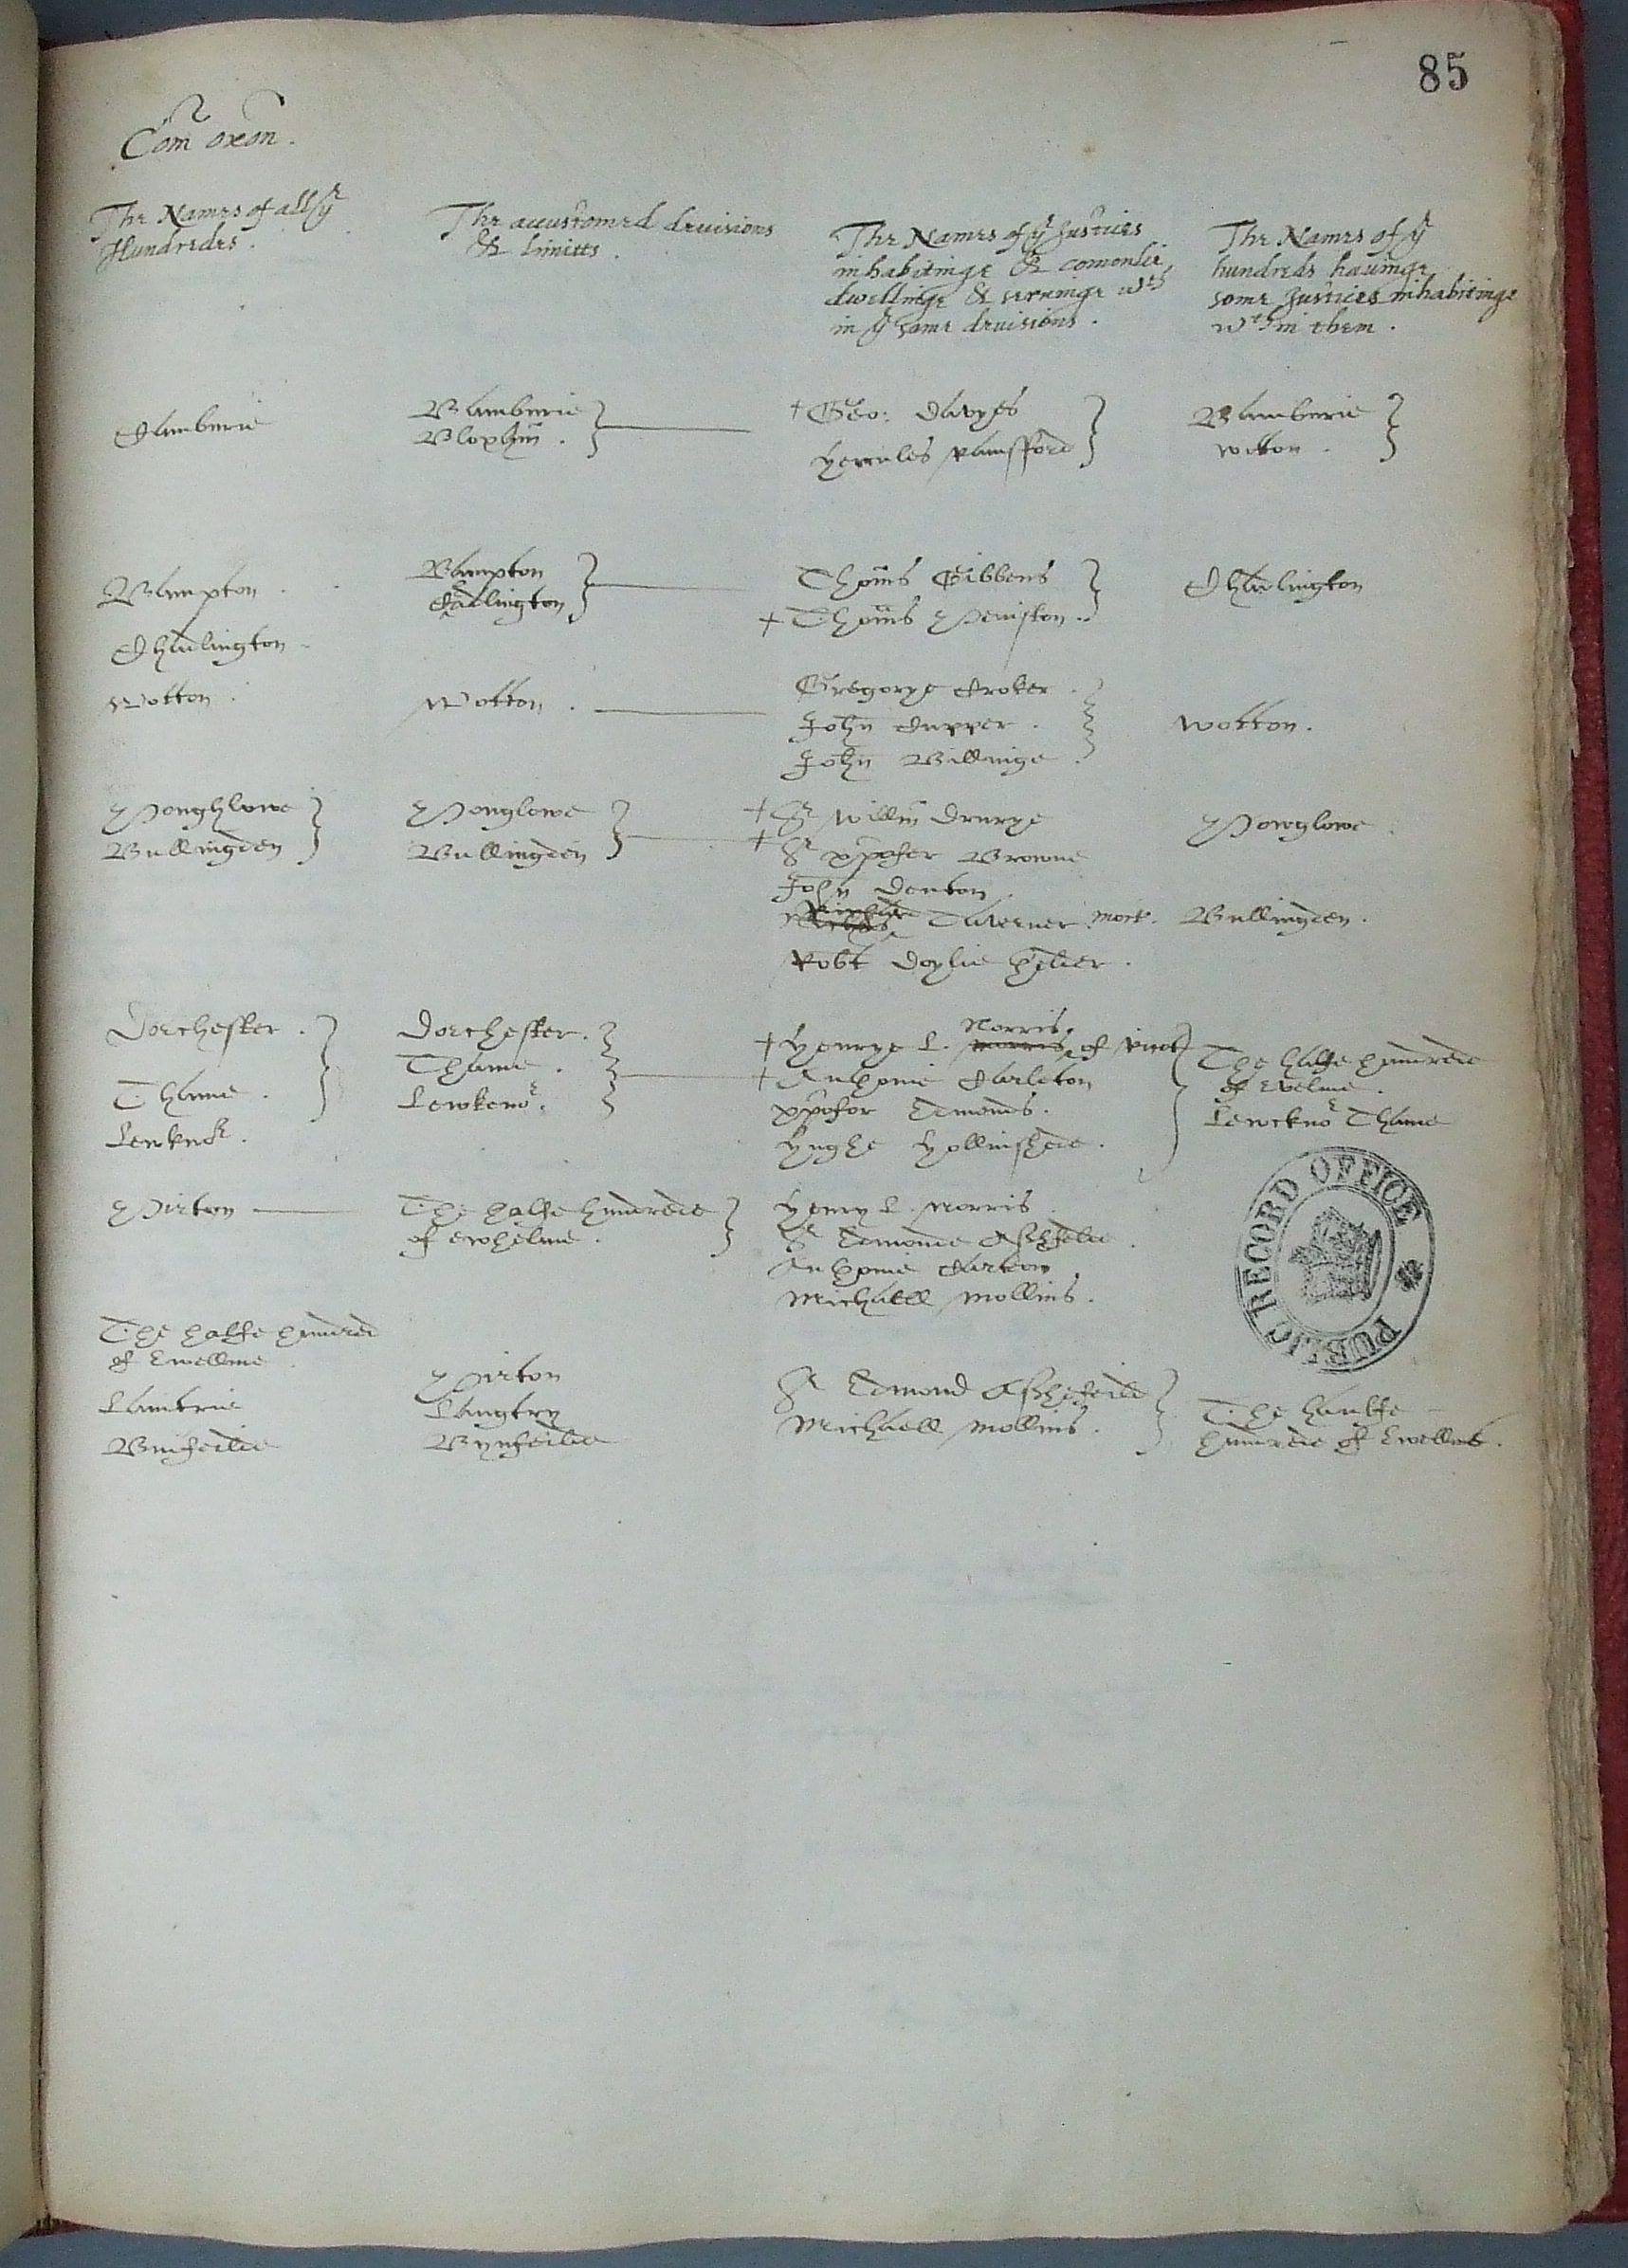 85
Com̃ oxoñ.
The Names of all yͤ
Hundredes.
The accustomed deuisions
& limitts.
The Names of yͤ Justices
inhabitinge & comonlie
dwellinge & servinge wᵗʰ
in yͤ same deuisions.
The Names of yͤ
hundreds hauinge
some Justices inhabitinge
wᵗʰin them.
Banburie
Bloxhm̃.
+ Geo: Davyes
Hercules Rainsford
Banburie
Wotton.
Bampton.
Chadlington
Bampton
Cadlington
Thom̃s Gibbens
+ Thom̃s Peniston.
Chadlington
Wotton.
Wotton.
Gregorye Croker.
John Cupper.
John Billinge.
Wotton.
Ploughlowe
Bullingden
Ploughlowe
Bullingden
+ Sʳ Willm̃ Drurye
+ Sʳ Xp̃ofer Browne
John Denton.
Richard Taverner mort.
Robt Doylie
Powglowe.
Bullingden.
Dorchester.
Thame.
Lewknoʳ.
Dorchester.
Thame.
Lewkenoʳ.
+ Henrye L. Norris of Ricot
+ Anthonie Carleton
Xp̃ofor Edmonds.
Hughe Hollinshede.
The halfe hundrede
of Ewelme.
Lewcknoʳ Thame
Pirton
The halfe hundrede
of Ewhelme.
Henry L. Norris
Sʳ Edmonde Asshfeld.
Anthonie Carleton
Michaell Mollins.
The halfe hundred
of Ewellme
Langtrie
Binfeilde
Pirton
Langtry
Bynfeilde
Sʳ Edmond Asshefeild
Michaell Mollins.
The haulfe
hundrede of Ewellme.
PUBLIC RECORD OFFICE